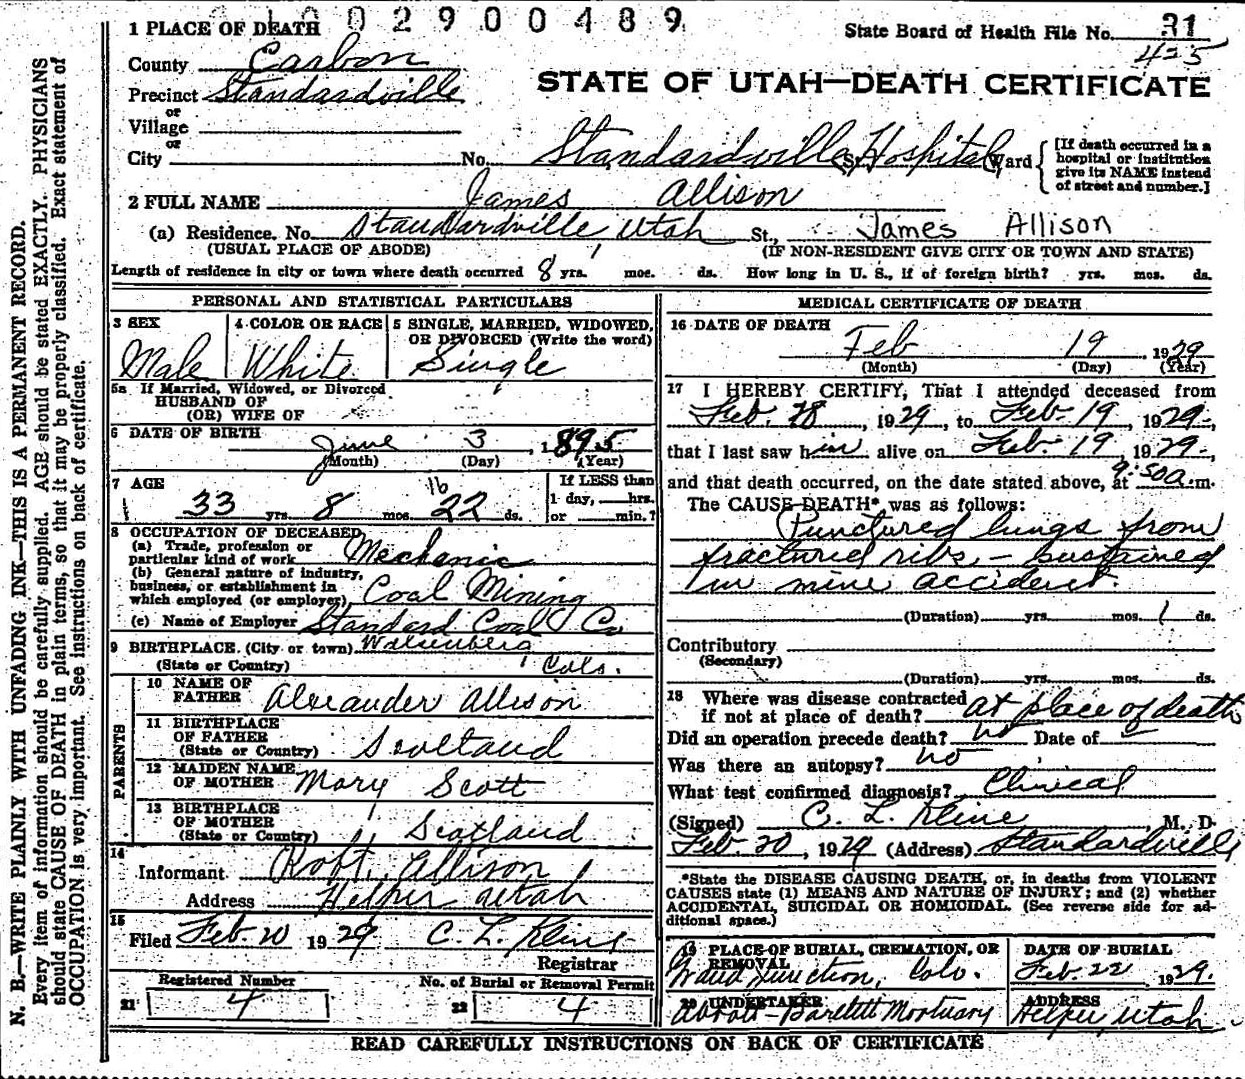 0 1 0 0 2 9 0 0 4 8 9
1 PLACE OF DEATH
State Board of Health File No. 31
425
County Carbon
STATE OF UTAH—DEATH CERTIFICATE
Precinct Standardville
or
Village
or
City No. Standardville St. Hospital Ward
[If death occurred in a hospital or institution give its NAME instead of street and number.]
2 FULL NAME James Allison
(a) Residence. No. Standardville, Utah St., James Allison
(USUAL PLACE OF ABODE) (IF NON-RESIDENT GIVE CITY OR TOWN AND STATE)
Length of residence in city or town where death occurred 8 yrs. mos. ds. How long in U. S., if of foreign birth? yrs. mos. ds.
PERSONAL AND STATISTICAL PARTICULARS
3 SEX 4 COLOR OR RACE 5 SINGLE, MARRIED, WIDOWED,
OR DIVORCED (Write the word)
Male White Single
5a If Married, Widowed, or Divorced
HUSBAND OF
(OR) WIFE OF
6 DATE OF BIRTH June 3, 1895
(Month) (Day) (Year)
7 AGE If LESS than
16
1 day, hrs.
33 yrs. 8 mos. 22 ds. or min.?
8 OCCUPATION OF DECEASED
(a) Trade, profession or
particular kind of work Mechanic
(b) General nature of industry,
business, or establishment in
which employed (or employer) Coal Mining
(c) Name of Employer Standard Coal Co
9 BIRTHPLACE. (City or town) Walsenberg
(State or Country) Colo.
PARENTS
10 NAME OF
FATHER Alexander Allison
11 BIRTHPLACE
OF FATHER
(State or Country) Scoltand
12 MAIDEN NAME
OF MOTHER Mary Scott
13 BIRTHPLACE
OF MOTHER
(State or Country) Scotland
14
Informant. Robt. Allison
Address Helper Utah
15
Filed Feb. 20 1929 C. L. Kline
Registrar
Registered Number No. of Burial or Removal Permit
21 4 22 4
MEDICAL CERTIFICATE OF DEATH
16 DATE OF DEATH
Feb 19, 1929
(Month) (Day) (Year)
17 I HEREBY CERTIFY, That I attended deceased from
Feb. 28, 1929, to Feb. 19, 1929,
that I last saw him alive on Feb. 19, 1929,
and that death occurred, on the date stated above, at 9:50a.m.
The CAUSE DEATH* was as follows:
Punctured lungs from
fractured ribs,— sustained
in mine accident.
(Duration) yrs. mos. 1 ds.
Contributory
(Secondary)
(Duration) yrs. mos. ds.
18 Where was disease contracted
if not at place of death? at place of death
Did an operation precede death? no Date of —
Was there an autopsy? no
What test confirmed diagnosis? Clinical
(Signed) C. L. Kline, M. D.
Feb. 20, 1929 (Address) Standardville
*State the DISEASE CAUSING DEATH, or, in deaths from VIOLENT
CAUSES state (1) MEANS AND NATURE OF INJURY; and (2) whether
ACCIDENTAL, SUICIDAL OR HOMICIDAL. (See reverse side for ad-
ditional space.)
19 PLACE OF BURIAL, CREMATION, OR
REMOVAL DATE OF BURIAL
Junction, Colo. Feb. 22, 1929.
20 UNDERTAKER ADDRESS
Bartlett Mortuary Helper, Utah
READ CAREFULLY INSTRUCTIONS ON BACK OF CERTIFICATE
N. B.—WRITE PLAINLY WITH UNFADING INK—THIS IS A PERMANENT RECORD.
Every item of information should be carefully supplied. AGE should be stated EXACTLY. PHYSICIANS
should state CAUSE OF DEATH in plain terms, so that it may be properly classified. Exact statement of
OCCUPATION is very important. See instructions on back of certificate.